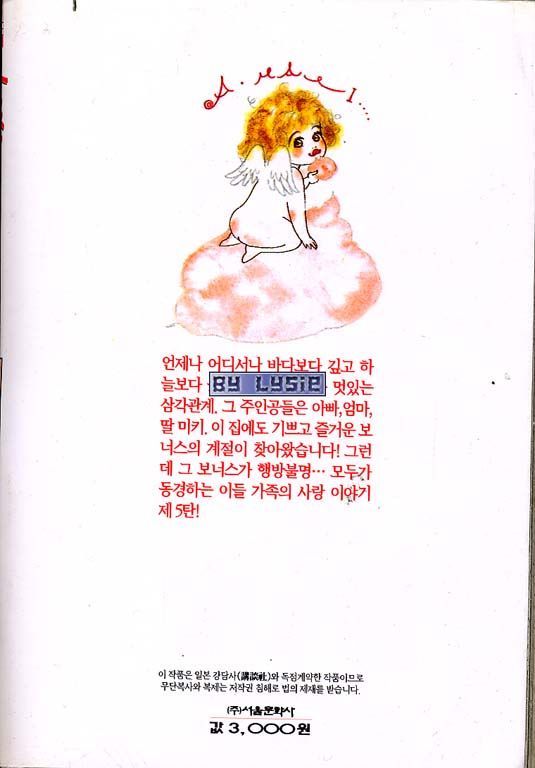 A. ngel....
언제나 어디서나 바다보다 깊고 하
늘보다 BY LYSIE 멋있는
삼각관계. 그 주인공들은 아빠,엄마,
딸 미키. 이 집에도 기쁘고 즐거운 보
너스의 계절이 찾아왔습니다! 그런
데 그 보너스가 행방불명… 모두가
동경하는 이들 가족의 사랑 이야기
제 5탄!
이 작품은 일본 강담사(講談社)와 독점계약한 작품이므로
무단복사와 복제는 저작권 침해로 법의 제재를 받습니다.
(주)서울문화사
값 3,000원